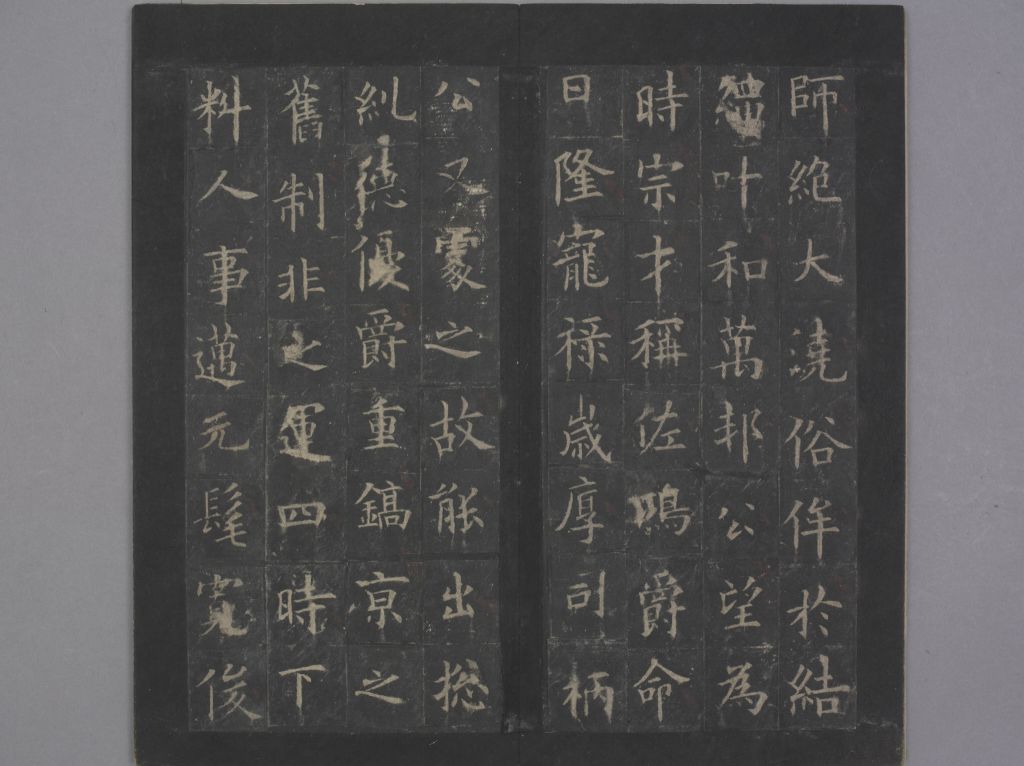 師絶大澆俗侔於結
繩叶和萬邦公望為
時宗才稱佐鳴爵命
日隆寵祿歲厚司柄
公又之故能出揔
糺德優爵重鎬京之
舊制非運四時下
料人事邁元髦寛俊